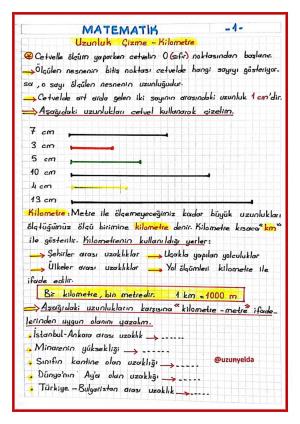 MATEMATİK -1-
Uzunluk Çizme - Kilometre
Cetvelle ölçüm yaparken cetvelin 0 (sıfır) noktasından başlanır.
Ölçülen nesnenin bitiş noktası cetvelde hangi sayıyı gösteriyor.
sa, o sayı ölçülen nesnenin uzunluğudur.
Cetvelde art arda gelen iki sayının arasındaki uzunluk 1 cm'dir.
Aşağıdaki uzunlukları cetvel kullanarak çizelim.
7 cm
3 cm
5 cm
10 cm
4 cm
13 cm
Kilometre: Metre ile ölçemeyeceğimiz kadar büyük uzunlukları
ölçtüğümüz ölçü birimine kilometre denir. Kilometre kısaca "km"
ile gösterilir. Kilometrenin kullanıldığı yerler:
Şehirler arası uzaklıklar Uçakla yapılan yolculuklar
Ülkeler arası uzaklıklar Yol ölçümleri kilometre ile
ifade edilir.
Bir kilometre, bin metredir. 1 km = 1000 m
Aşağıdaki uzunlukların karşısına "kilometre - metre" ifade-
lerinden uygun olanını yazalım.
. İstanbul-Ankara arası uzaklık → -----
. Minarenin yüksekliği → -----
. Sınıfın kantine olan uzaklığı → -----
. Dünya'nın Ay'a olan uzaklığı → -----
. Türkiye - Bulgaristan arası uzaklık → -----
@uzunyelda